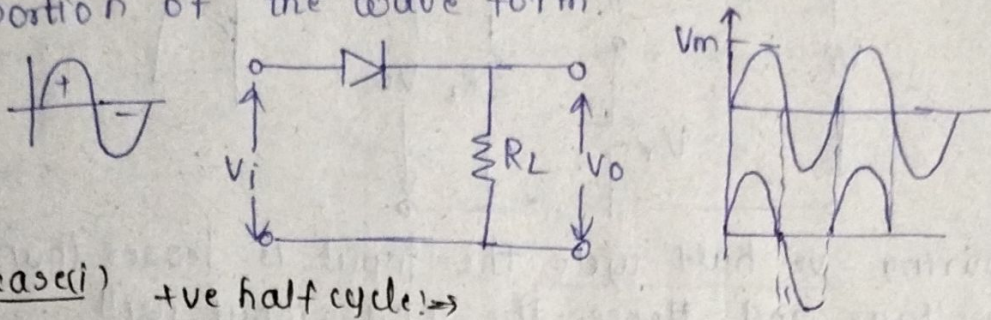 portion of the wave form.
+
-
Vi
RL
Vo
Vm
case(i) +ve half cycle:→